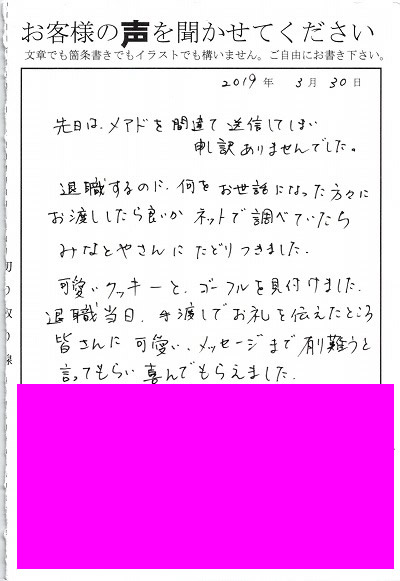 お客様の声を聞かせてください
文章でも箇条書きでもイラストでも構いません。ご自由にお書き下さい。
2019年 3月 30日
先日は、メアドを間違て送信してしまい
申し訳ありませんでした。
退職するのに、何をお世話になった方々に
お渡ししたら良いか ネットで調べていたら
みなとやさんに たどりつきました.
可愛いクッキーと、ゴーフルを見付けました.
退職当日、手渡しでお礼を伝えたところ
皆さんに 可愛い、メッセージまで 有難うと
言ってもらい 喜んでもらえました.
切り取り線